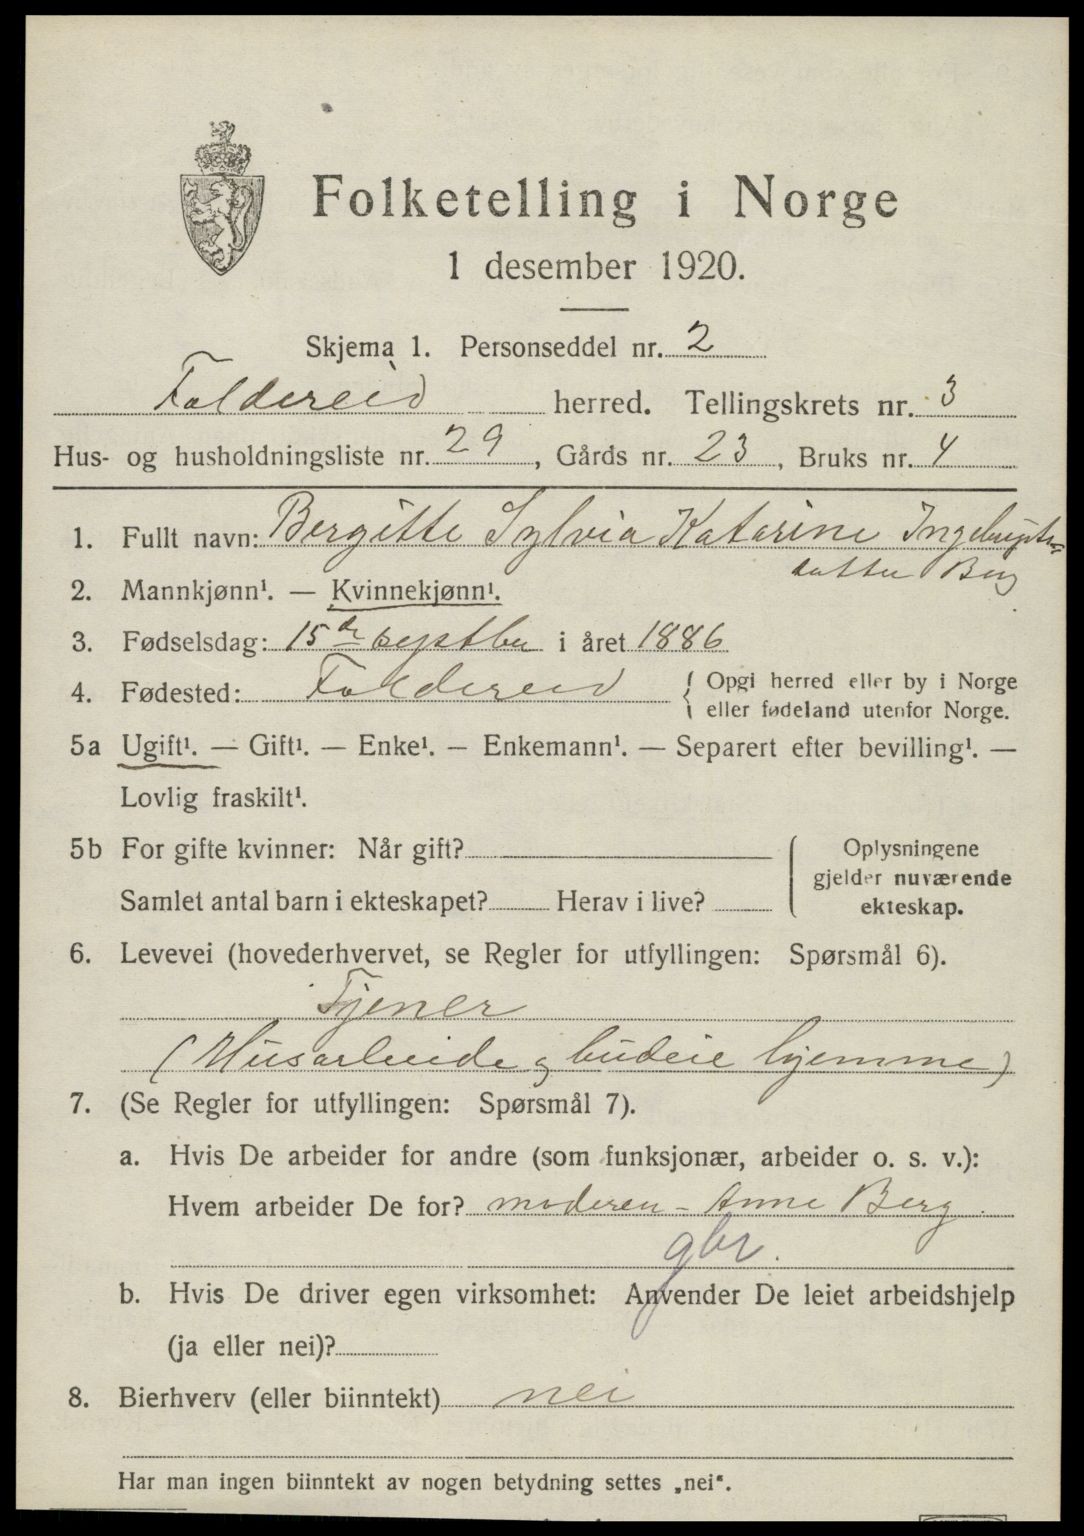 Folketelling i Norge
1 desember 1920.
Skjema 1. Personseddel nr. 2
Foldereid herred. Tellingskrets nr. 3
Hus- og husholdningsliste nr. 29, Gårds nr. 23, Bruks nr. 4
1. Fullt navn: Bergitte Sylvia Katarine Ingebrigts-
datter Berg
2. Mannkjønn¹. — Kvinnekjønn¹.
3. Fødselsdag: 15de septbr i året 1886
4. Fødested: Foldereid { Opgi herred eller by i Norge
eller fødeland utenfor Norge.
5a Ugift¹. — Gift¹. — Enke¹. — Enkemann¹. — Separert efter bevilling¹. —
Lovlig fraskilt¹.
5b For gifte kvinner: Når gift? { Oplysningene
gjelder nuværende
Samlet antal barn i ekteskapet? Herav i live? ekteskap.
6. Levevei (hovederhvervet, se Regler for utfyllingen: Spørsmål 6).
Tjener
(Husarbeide og budeie hjemme)
7. (Se Regler for utfyllingen: Spørsmål 7).
a. Hvis De arbeider for andre (som funksjonær, arbeider o. s. v.):
Hvem arbeider De for? moderen - Anne Berg.
gbr.
b. Hvis De driver egen virksomhet: Anvender De leiet arbeidshjelp
(ja eller nei)?
8. Bierhverv (eller biinntekt) nei
Har man ingen biinntekt av nogen betydning settes „nei“.